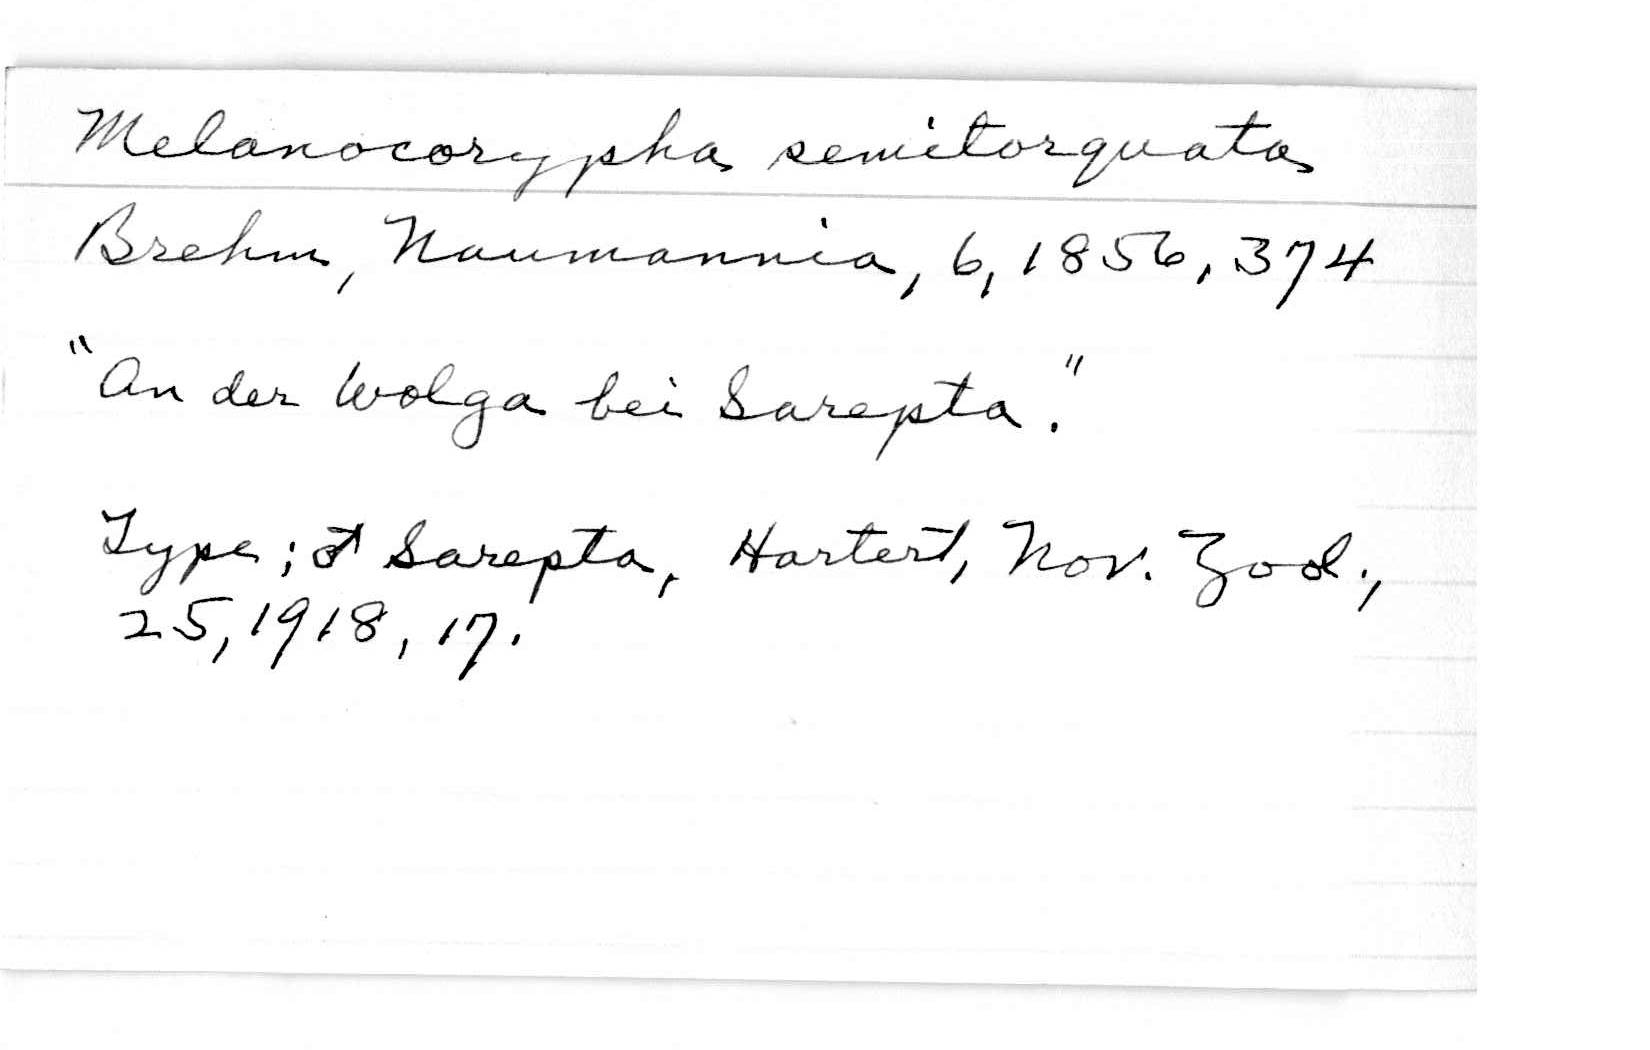 Melanocorypha semitorquata
Brehm, Naumannia, 6, 1856, 374
"An der Wolga bei Sarepta."
Type; ♂ Sarepta, Hartert, Nov. Zool.,
25, 1918, 17.